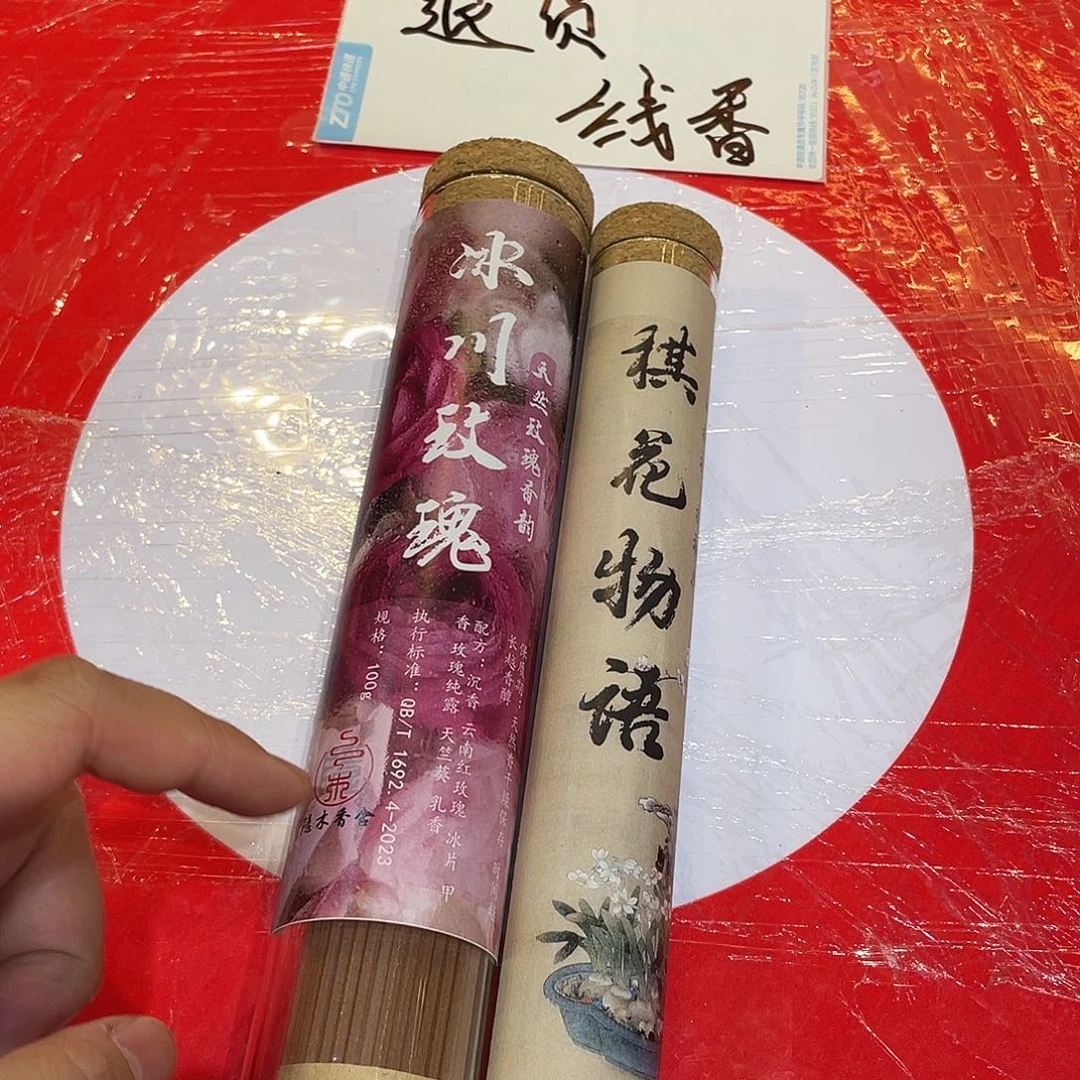 退货
线香
ZTO 中通快递
冰川玫瑰
天然玫瑰香韵
配方：沉香 云南红玫瑰 冰片 甲
香 玫瑰纯露 天竺葵 乳香
执行标准：QB/T 1692.4-2023
规格：100g
木香舍
棋花物语